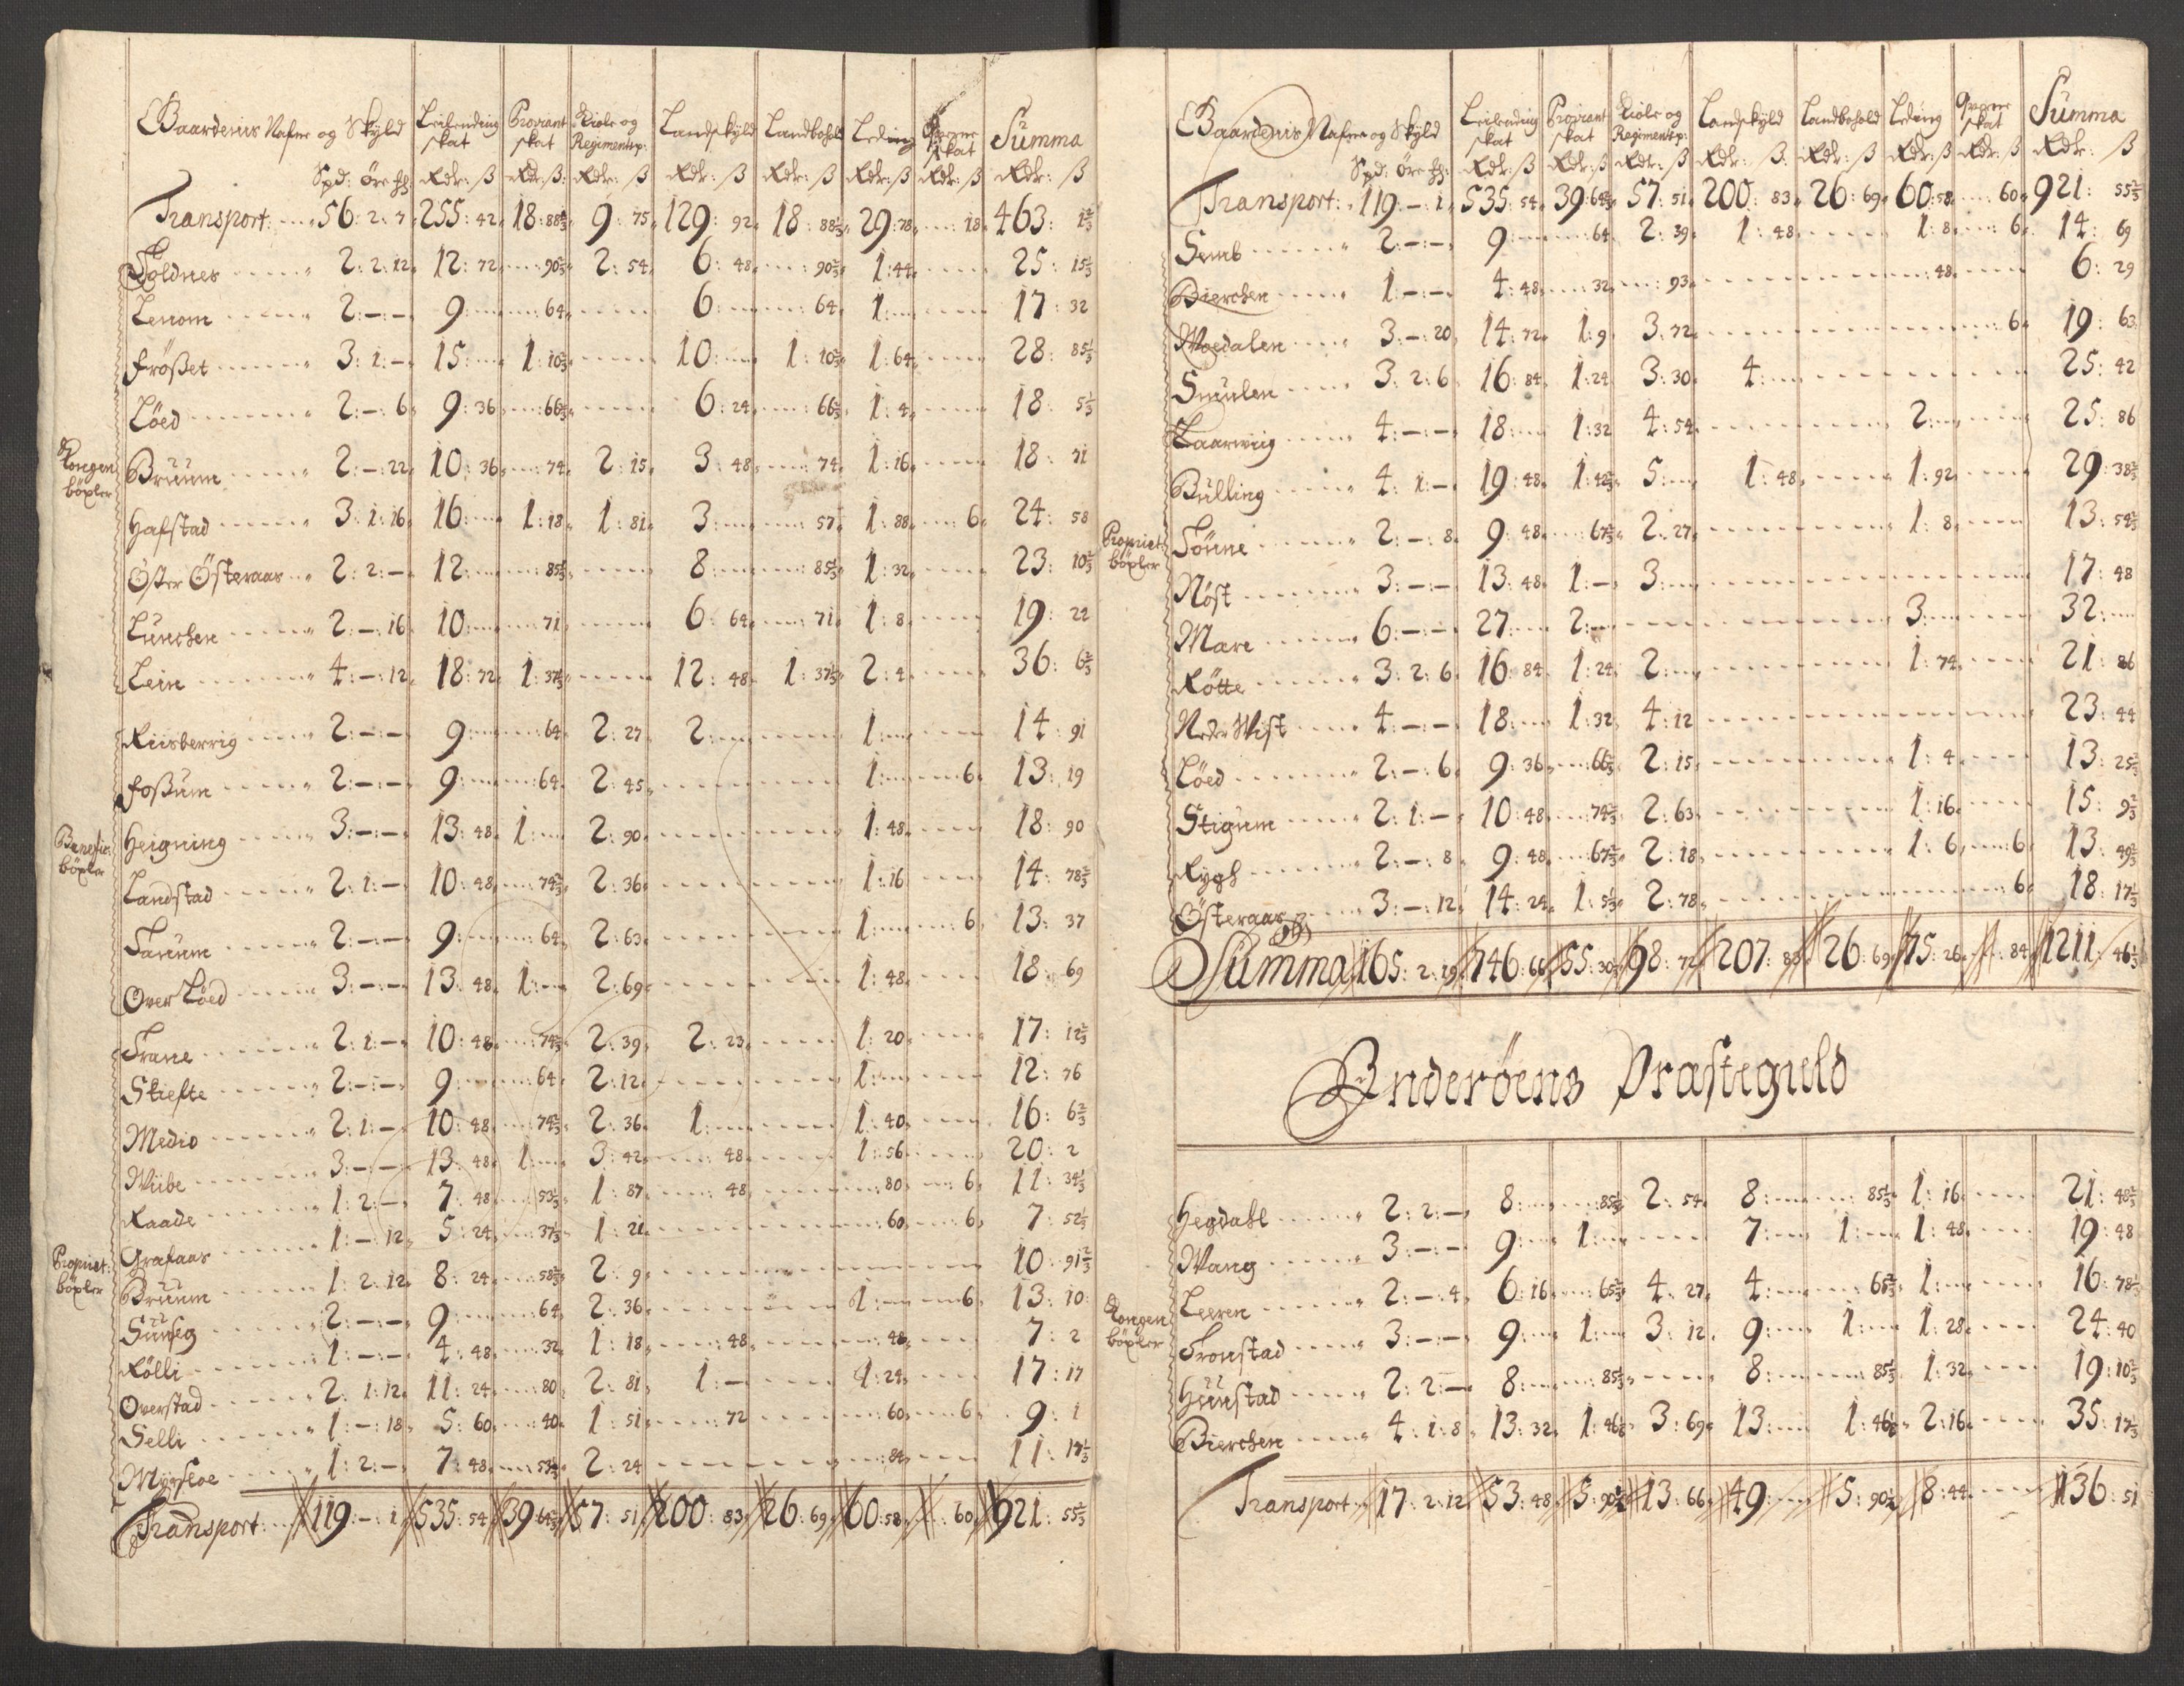 Gaardenis Nafne og Skyld Leilending skat Proviant skat Kiole og Regimentsp: Landskyld Landbohold Leding Qværne skat Summa
Spd: öre ħ: Rdr: ß Rdr: ß: Rdr: ß Rdr: ß Rdr: ß Rdr: ß Rdr: ß Rdr: ß
Transport: 56: 2: 7 255: 42 18: 88⅓ 9: 75 129: 92 18: 88⅓ 29: 78 18 463: 1⅔
Foldnes 2: 2: 12 12: 72 90⅔ 2: 54 6: 48 90⅔ 1: 44 25: 15⅓
Lenom 2: -: - 9: 64 6: 64 1: 17: 32
Frößet 3: 1: - 15: 1: 10⅔ 10: 1: 10⅔ 1: 64 28: 85⅓
Löed 2: -: 6 9: 36 66⅔ 6: 24 66⅔ 1: 4 18: 5⅓
Kongen böxler
Bruum 2: -: 22 10: 36 74 2: 15 3: 48 74 1: 16 18: 71
Hafstad 3: 1: 16 16: 1: 18 1: 81 3: 57 1: 88 6 24: 58
Öster Österaas 2: 2: - 12: 85⅓ 8: 85⅓ 1: 32 23: 10⅔
Lunchen 2: -: 16 10: 71 6: 64 71 1: 8 19: 22
Lein 4: -: 12 18: 72 1: 37⅓ 12: 48 1: 37⅓ 2: 4 36: 6⅔
Riisberrig 2: -: - 9: 64 2: 27 2: 1: 14: 91
Foßum 2: -: - 9: 64 2: 45 1: 6 13: 19
Benefic: böxler
Heigning 3: -: - 13: 48 1: 2: 90 1: 48 18: 90
Landstad 2: 1: - 10: 48 74⅔ 2: 36 1: 16 14: 78⅔
Farum 2: -: - 9: 64 2: 63 1: 6 13: 37
Over Löed 3: -: - 13: 48 1: 2: 69 1: 48 18: 69
Trane 2: 1: - 10: 48 74⅔ 2: 39 2: 23 1: 20 17: 12⅔
Stiefte 2: -: - 9: 64 2: 12 1: 12: 76
Medio 2: 1: - 10: 48 74⅔ 2: 36 1: 1: 40 16: 6⅔
Wiibe 3: -: - 13: 48 1: 3: 42 48 1: 56 20: 2
Raade 1: 2: - 7: 48 53⅓ 1: 87 48 80 6 11: 34⅓
Grafaas 1: -: 12 5: 24 37⅓ 1: 21 60 6 7: 52⅓
Propriet: böxler
Bruum 1: 2: 12 8: 24 58⅔ 2: 9 10: 91⅔
Sunseg 2: -: - 9: 64 2: 36 1: 6 13: 10
Rölli 1: -: - 4: 48 32 1: 18 48 48 7: 2
Overstad 2: 1: 12 11: 24 80 2: 81 1: - 1: 24 17: 17
Selli 1: -: 18 5: 60 40 1: 51 72 60 6 9: 1
Mygsloe 1: 2: - 7: 48 53⅓ 2: 24 84 11: 17⅓
Transport 119: -: 1 535: 54 39: 64⅔ 57: 51 200: 83 26: 69 60: 58 60 921: 55⅔
Gaardenis Nafne og Skyld Leilending skat Proviant skat Kiole og Regimentsp: Landskyld Landbohold Leding Qværne skat Summa
Spd: öre ħ: Rdr: ß Rdr: ß Rdr: ß Rdr: ß: Rdr: ß Rdr: ß Rdr: ß Rdr: ß
Transport: 119: -: 1 535: 54 39: 64⅔ 57: 51 200: 83 26: 69 60: 58 60 921: 55⅔
Semb 2: -: - 9: 64 2: 39 1: 48 1: 8 6 14: 69
Bierchen 1: -: - 4: 48 32 93 48 6: 29
Moedalen 3: -: 20 14: 72 1: 9 3: 72 6 19: 63
Smulen 3: 2: 6 16: 84 1: 24 3: 30 4: 25: 42
Laarwiig 4: -: - 18: 1: 32 4: 54 2: 25: 86
Bulling 4: 1: - 19: 48 1: 42⅔ 5: 1: 48 1: 92 29: 38⅔
Propriet: böxler
Sönne 2: -: 8 9: 48 67⅔ 2: 27 1: 8 13: 54⅔
Nöst 3: -: - 13: 48 1: - 3: 17: 48
Mare 6: -: - 27: 2: 3: 32:
Røtte 3: 2: 6 16: 84 1: 24 2: 1: 74 21: 86
Neder Wist 4: -: - 18: 1: 32 4: 12 23: 44
Löed 2: -: 6 9: 36 66⅔ 2: 15 1: 4 13: 25⅔
Stigum 2: 1: - 10: 48 74⅔ 2: 63 1: 16 15: 9⅔
Rygh 2: -: 8 9: 48 67⅔ 2: 18 1: 6 6 13: 49⅔
Österaas 3: -: 12 14: 24 1: 5⅓ 2: 78 6 18: 17⅓
Summa 165: 2: 19 746: 66 55: 30⅔ 98: 72 207: 83 26: 69 75: 26 84 1211: 46⅓
Inderöens Præstegield
Hegdahl 2: 2: - 8: 85⅓ 2: 54 8: 85⅓ 1: 16 21: 48⅔
Wang 3: -: - 9: 1: 7: 1: 1: 48 19: 48
Leeren 2: -: 4 6: 16 65⅔ 4: 27 4: 65⅔ 1: 16: 78⅓
Kongen böxler
Tronstad 3: -: - 9: 1: 3: 12 9: 1: 1: 28 24: 40
Huustad 2: 2: - 8: 85⅓ 8: 85⅓ 1: 32 19: 10⅔
Bierchen 4: 1: 8 13: 32 1: 46⅔ 3: 69 13: 1: 46⅔ 2: 16 35: 17⅓
Transport 17: 2: 12 53: 48 5: 90⅔ 13: 66 49: 5: 90⅔ 8: 44 136: 51